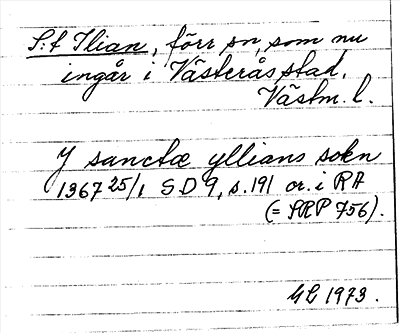 S:t Ilian, förr sn, som nu
ingår i Västerås stad,
Västm. l.
J sanctæ yllians sokn
1367 25/1 SD 9, s. 191 or. i RA
(= SRP 756).
1973.